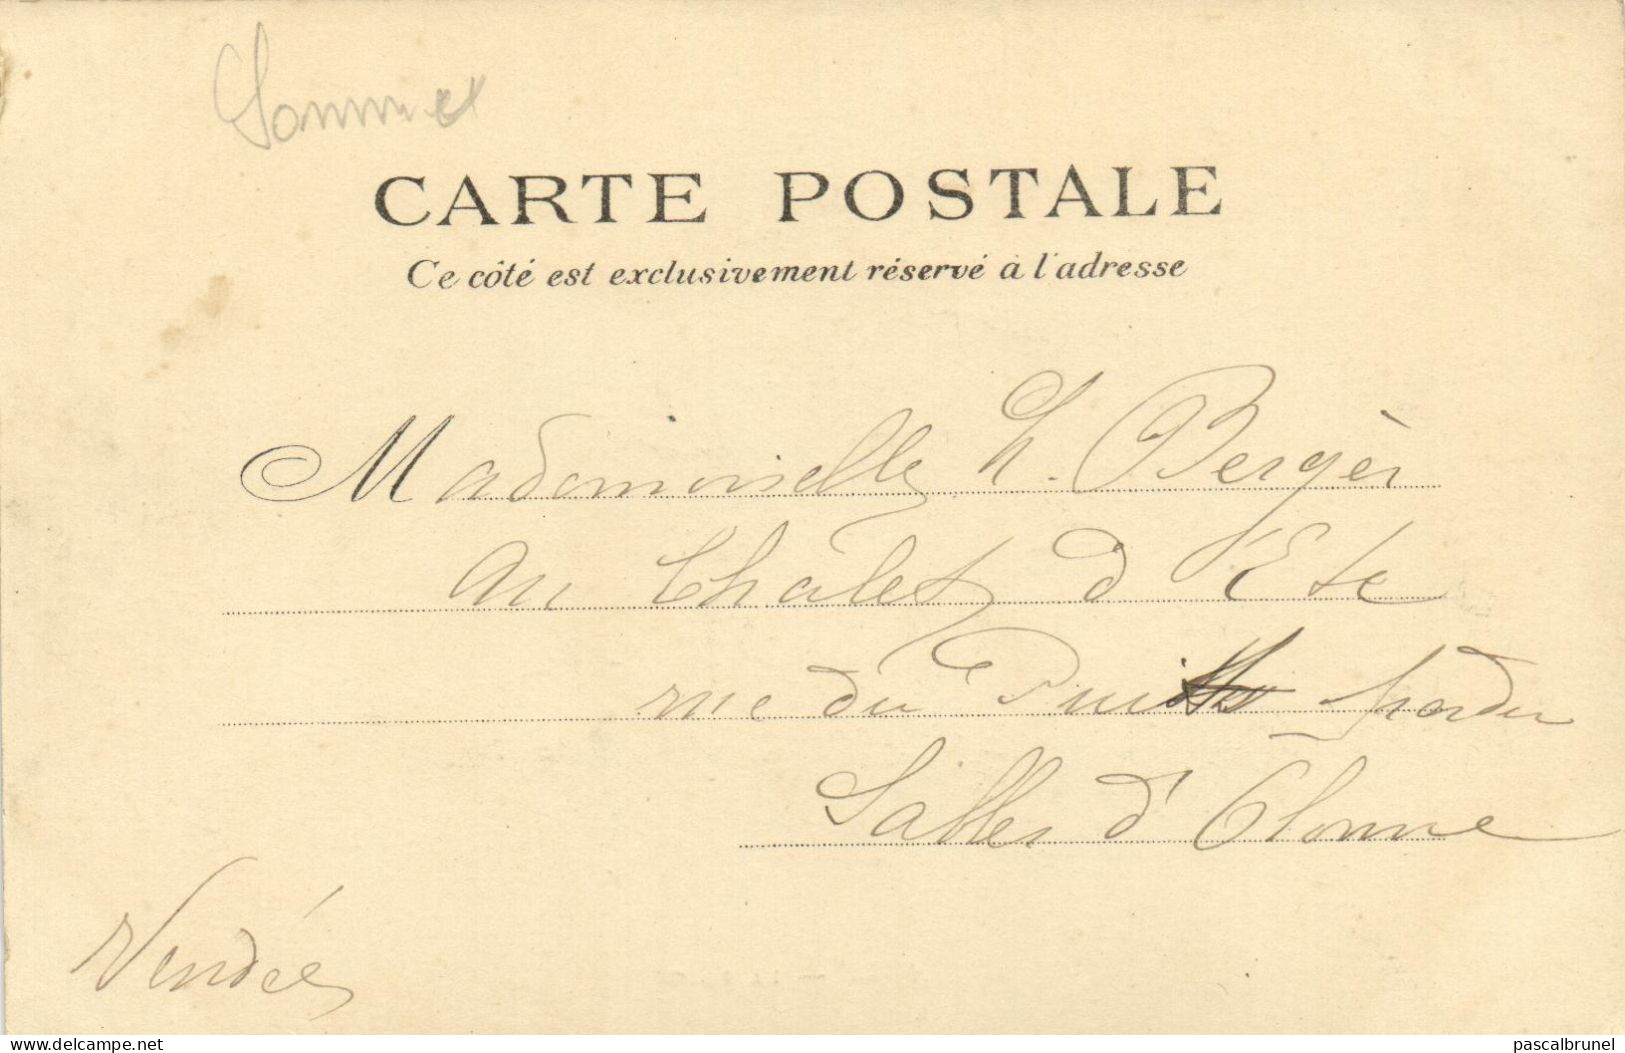 Somme
CARTE POSTALE
Ce côté est exclusivement réservé à l'adresse
Mademoiselle h. Bergèr
au Châlet d'Eté
rue du Puits
Sables d'Olonne
Vendée
www.delcampe.net
pascalbrunel